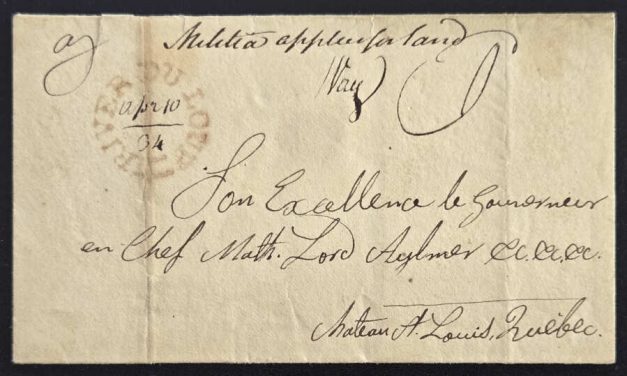 Militia applen for land
Way
RIVIERE DU LOUP
apr 10
34
Son Excellence le Gouverneur
en Chef Math. Lord Aylmer &c. &c. &c.
Chateau St. Louis, Québec.